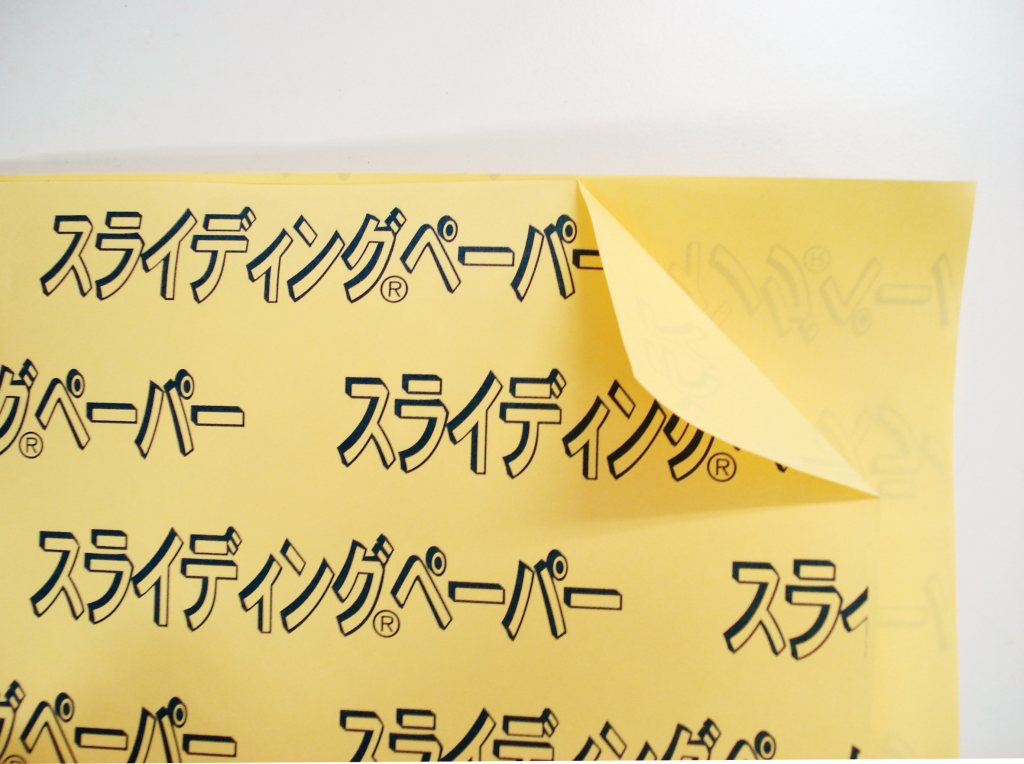 スライディングペーパー
グ®ペーパー スライディング®
スライディングペーパー® スライ
グペーパー スライディングペ